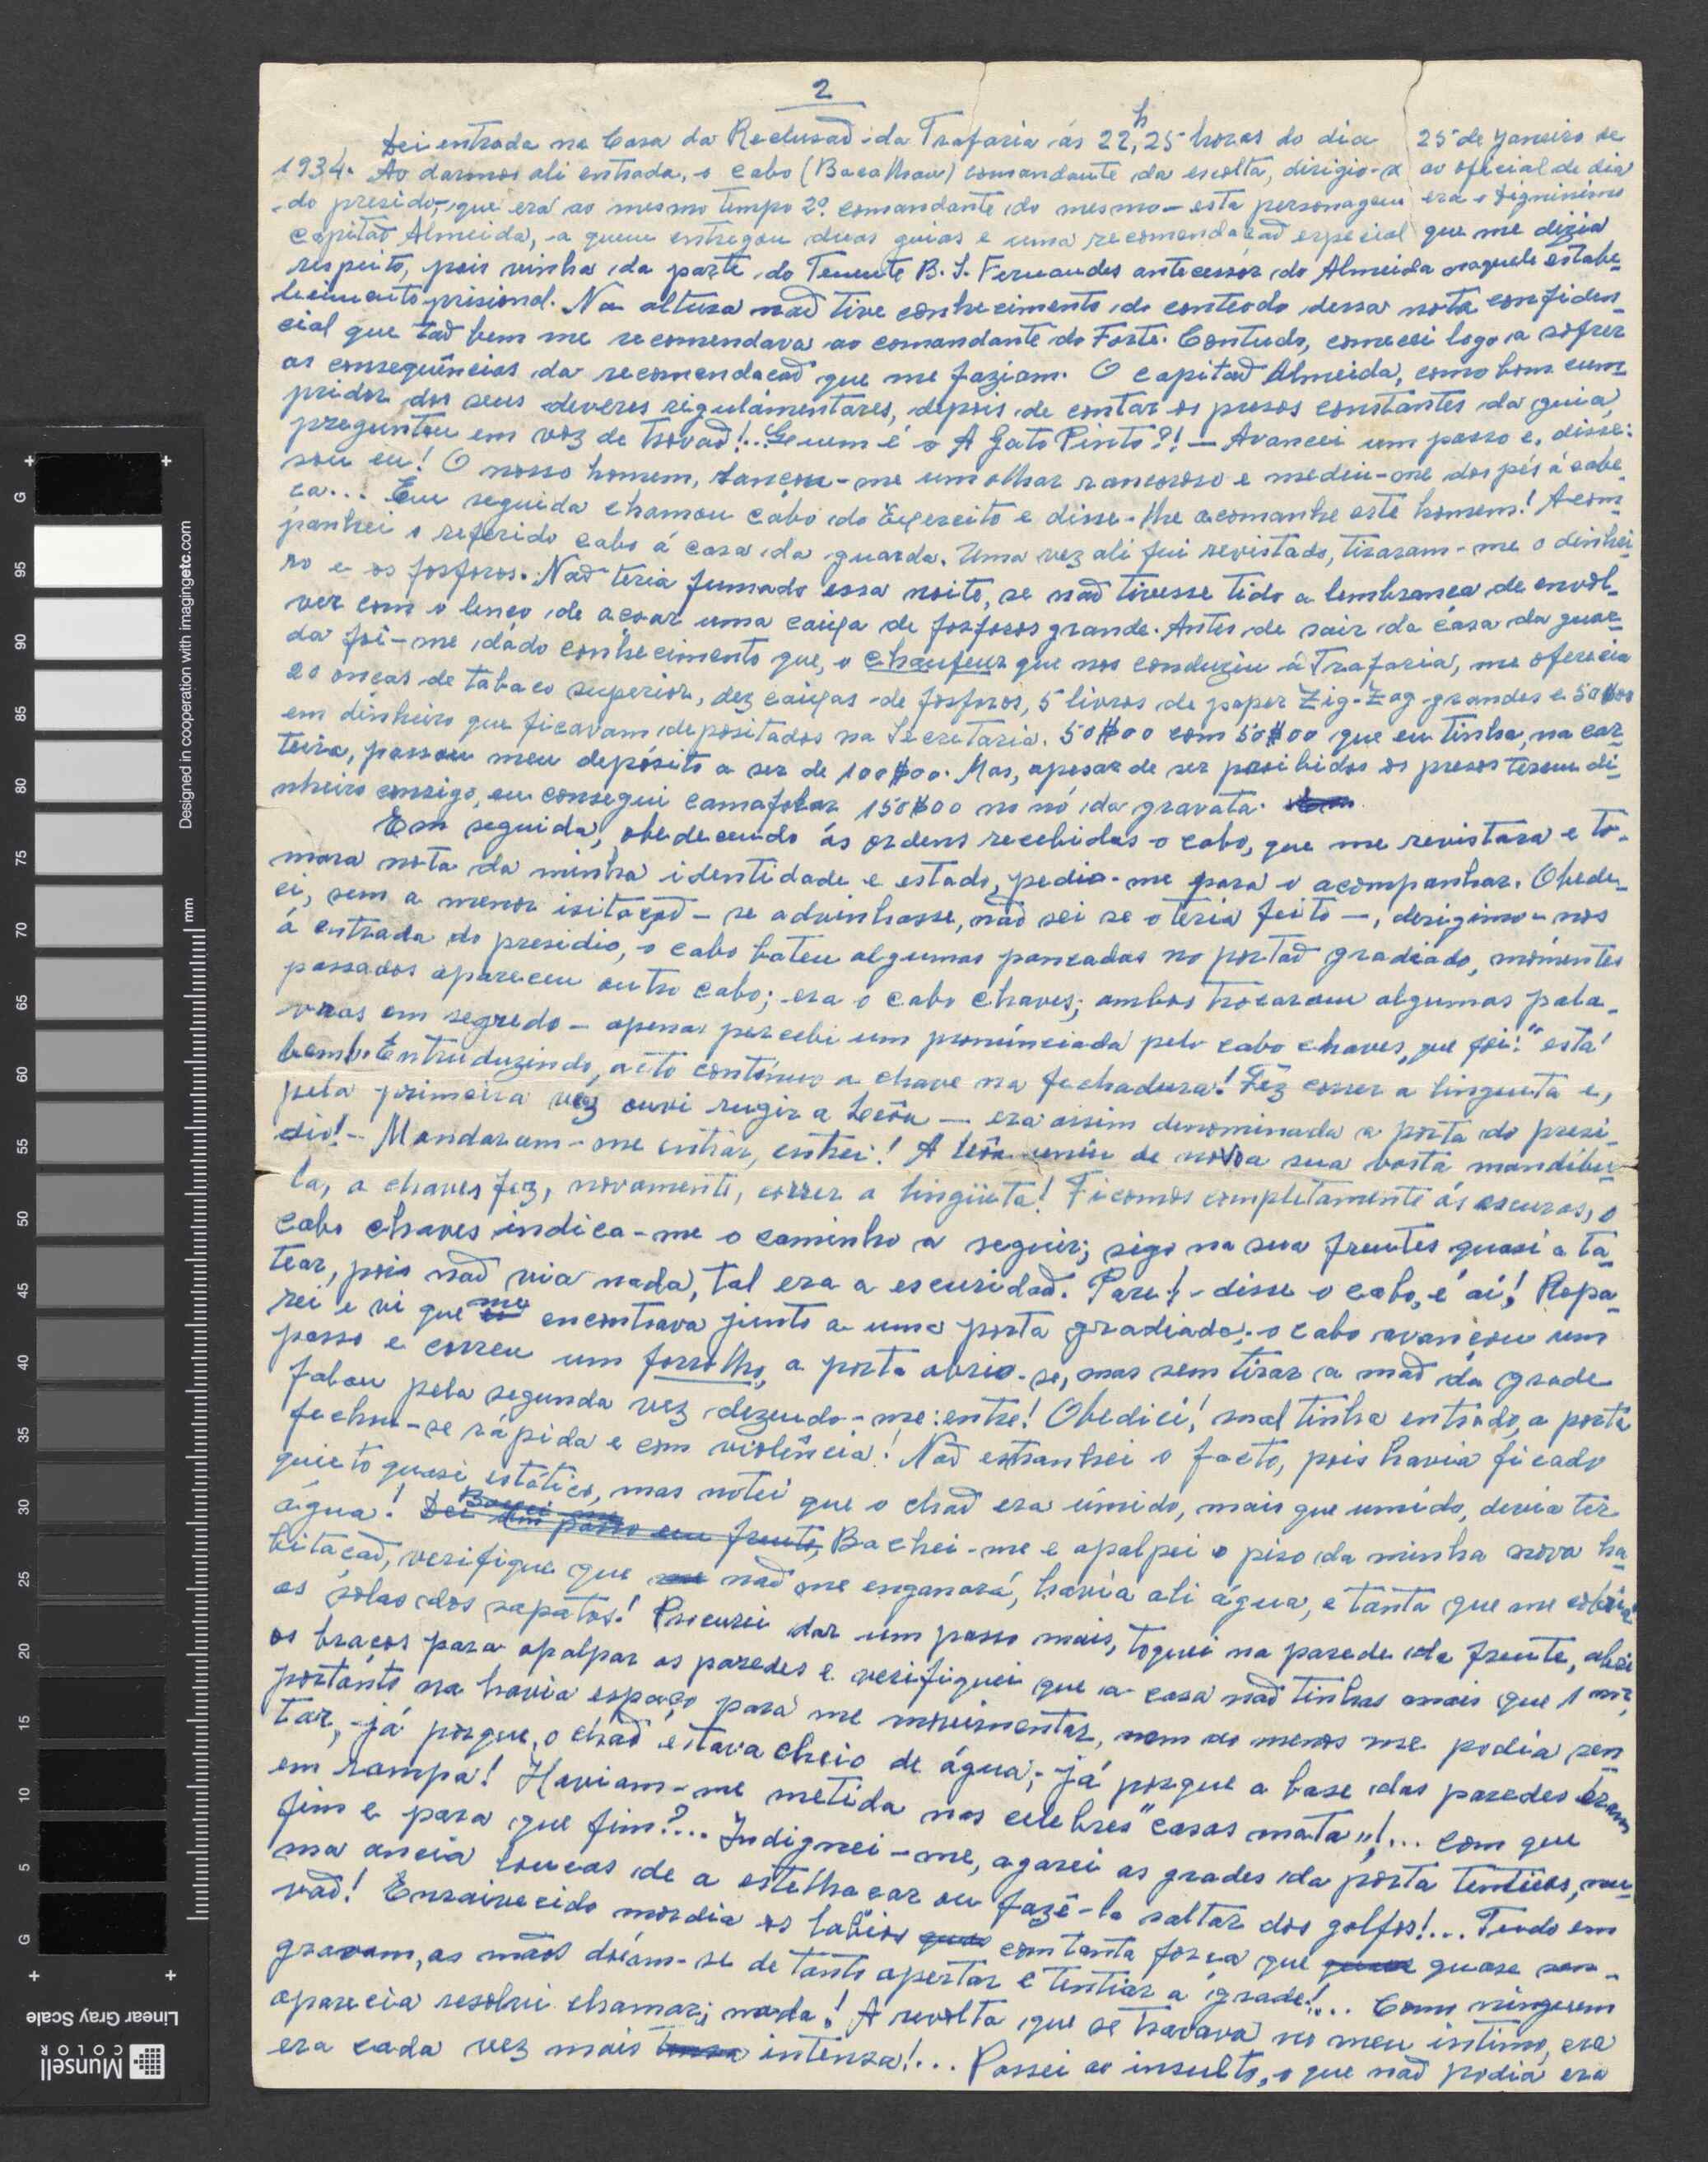 2
Dei entrada na Casa da Reclusaõ da Trafaria ás 22,h25 horas do dia 25 de Janeiro de
1934. Ao darmos ali entrada, o cabo (Bacalhau) comandante da escolta, dirigio-se ao oficial de dia
do presido, que era ao mesmo tempo 2º comandante do mesmo - esta personagem era o digninimo
capitaõ Almeida, a quem entregou duas guias e uma recomendacaõ especial que me dizia
respeito, pois vinha da parte do Tenente B. J. Fernandes antecessor do Almeida naquele estabe-
lecimento prisional. Na altura naõ tive conhecimento do conteodo dessa nota confiden-
cial que taõ bem me recomendava ao comandante do Forte. Contudo, comecei logo a sofrer
as consequências da recomendacaõ que me faziam. O capitaõ Almeida, como bom cum-
pridor dos seus deveres regulamentares, depois de contar os presos constantes da guia,
preguntou em voz de trovaõ!.. Quem é o A Gato Pinto?! — Avancei um passo e, disse:
sou eu! O nosso homem, lançou-me um olhar rancoroso e mediu-me dos pés á cabe-
ca... Em seguida chamou cabo do Exercito e disse-lhe acomanhe este homem! Acom-
panhei o referido cabo á casa da guarda. Uma vez ali fui revistado, tiraram-me o dinhei-
ro e os fosforos. Naõ teria fumado essa noite, se naõ tivesse tido a lembranca de envol-
ver com o lenco de acoar uma caixa de fosforos grande. Antes de sair da casa da guar-
da foi-me dado conhecimento que, o chaufeur que nos conduziu á Trafaria, me oferecia
20 oncas de tabaco superior, dez caixas de fosforos, 5 livros de paper Zig-Zag grandes e 50$00
em dinheiro que ficavam depositados na Secretaria. 50$00 com 50$00 que eu tinha, na car-
teira, passou meu depósito a ser de 100$00. Mas, apesar de ser proibidos os presos terem di-
nheiro consigo, eu consegui camafolar 150$00 no nó da gravata.
Em seguida, obedecendo ás ordens recebidas o cabo, que me revistara e to-
mara nota da minha identidade e estado, pedio-me para o acompanhar. Obede-
ci, sem a menor isitaçaõ - se advinhasse, naõ sei se o teria feito —, derigimo-nos
á entrada do presidio, o cabo bateu algumas pancadas no portaõ gradiado, momentos
passados apareceu outro cabo; era o cabo chaves; ambos trocaram algumas pala-
vras em segredo - apenas percebi um pronúnciada pelo cabo chaves, que foi: "está
bem". Entruduzindo, acto contínuo a chave na fechadura! Fêz correr a lingueta e,
pela primeira vez ouvi rugir a Leôa — era assim denominada a porta do presi-
dio! - Mandaram-me entrar, entrei! A leôa uniu de novo a sua vasta mandibu-
la, a chaves fez, novamente, correr a lingüeta! Ficamos completamente ás escuras, o
cabo chaves indica-me o caminho a seguir; sigo na sua frentes quasi a ta-
tear, pois naõ via nada, tal era a escuridaõ. Pare! - disse o cabo, é aí! Repa-
rei e vi que me encontrava junto a uma porta gradiada; o cabo avançou um
passo e correu um forrolho, a porta abrio-se, mas sem tirar a maõ da grade
falou pela segunda vez dezendo-me: entre! Obedici! mal tinha entrado, a porta
fechou-se rápida e com violência! Naõ estranhei o facto, pois havia ficado
quieto quasi estático, mas notei que o chaõ era úmido, mais que umído, devia ter
água! Dei um passo em frente, Bachei-me e apalpei o piso da minha nova ha-
bitacaõ, verifique que naõ me enganará, havia ali água, e tanta que me cobria
as solas dos sapatos! Procurei dar um passo mais, toquei na parede da frente, abri
os braços para apalpar as paredes e verifiquei que a casa naõ tinha mais que 1 m2,
portanto na havia espaço para me movimentar, nem ao menos me podia sen-
tar, - já porque, o chaõ estava cheio de água; - já porque a base das paredes eram
em rampa! Haviam-me metida nas celebres "casas mata"!... com que
fim e para que fim?... Indignei-me, agarei as grades da porta tenticas, nu-
ma ancia loucas de a estelhacar ou fazê-la saltar dos golfos!... Tudo em
vaõ! Enraivecido mordia os labios com tanta forca que quase san-
gravam, as mãos doíam-se de tanto apertar e tentiar a grade!... Como ninguem
aparecia resolvi chamar; nada! A revolta que se travava no meu intimo, era
era cada vez mais intensa!... Passei ao insulto, o que naõ podia era
Designed in cooperation with imagingetc.com
mm
Munsell COLOR
Linear Gray Scale
G 95 90 85 80 75 70 65 60 55 50 45 40 35 30 25 20 15 10 5 G